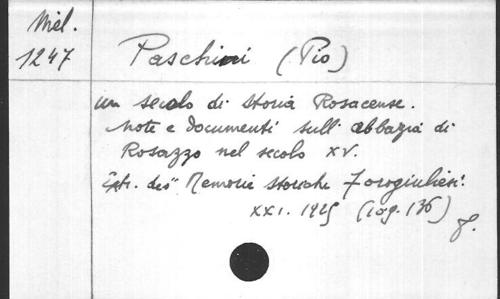 Mél.
1247
Paschini (Pio)
un secolo di storia Rosacense.
Note e documenti sull' abbazia di
Rosazzo nel secolo XV.
Estr. des "Memorie storiche Forogiuliesi".
XXI. 1925 (pag. 136)